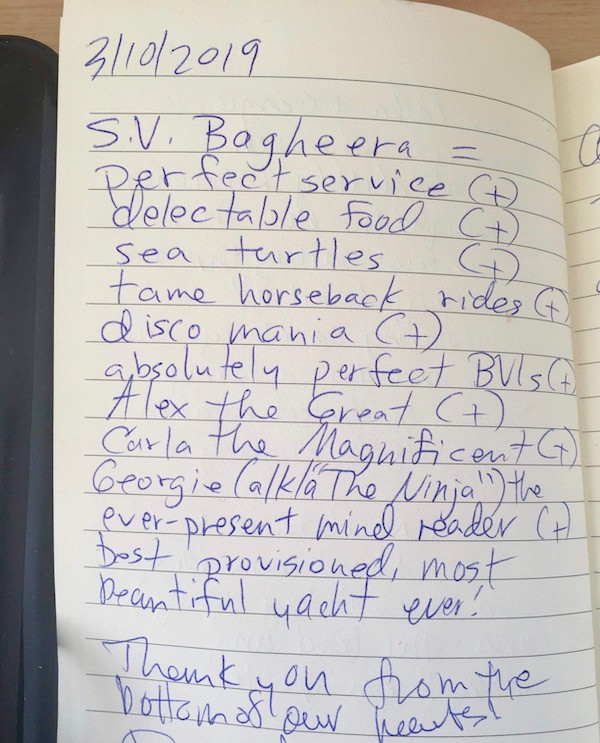 3/10/2019
S.V. Bagheera =
perfect service (+)
delectable food (+)
sea turtles (+)
tame horseback rides (+)
disco mania (+)
absolutely perfect BVIs (+)
Alex the Great (+)
Carla the Magnificent (+)
Georgie (a/k/a "The Ninja") the
ever-present mind reader (+)
best provisioned, most
beautiful yacht ever!
Thank you from the
bottom of our hearts!